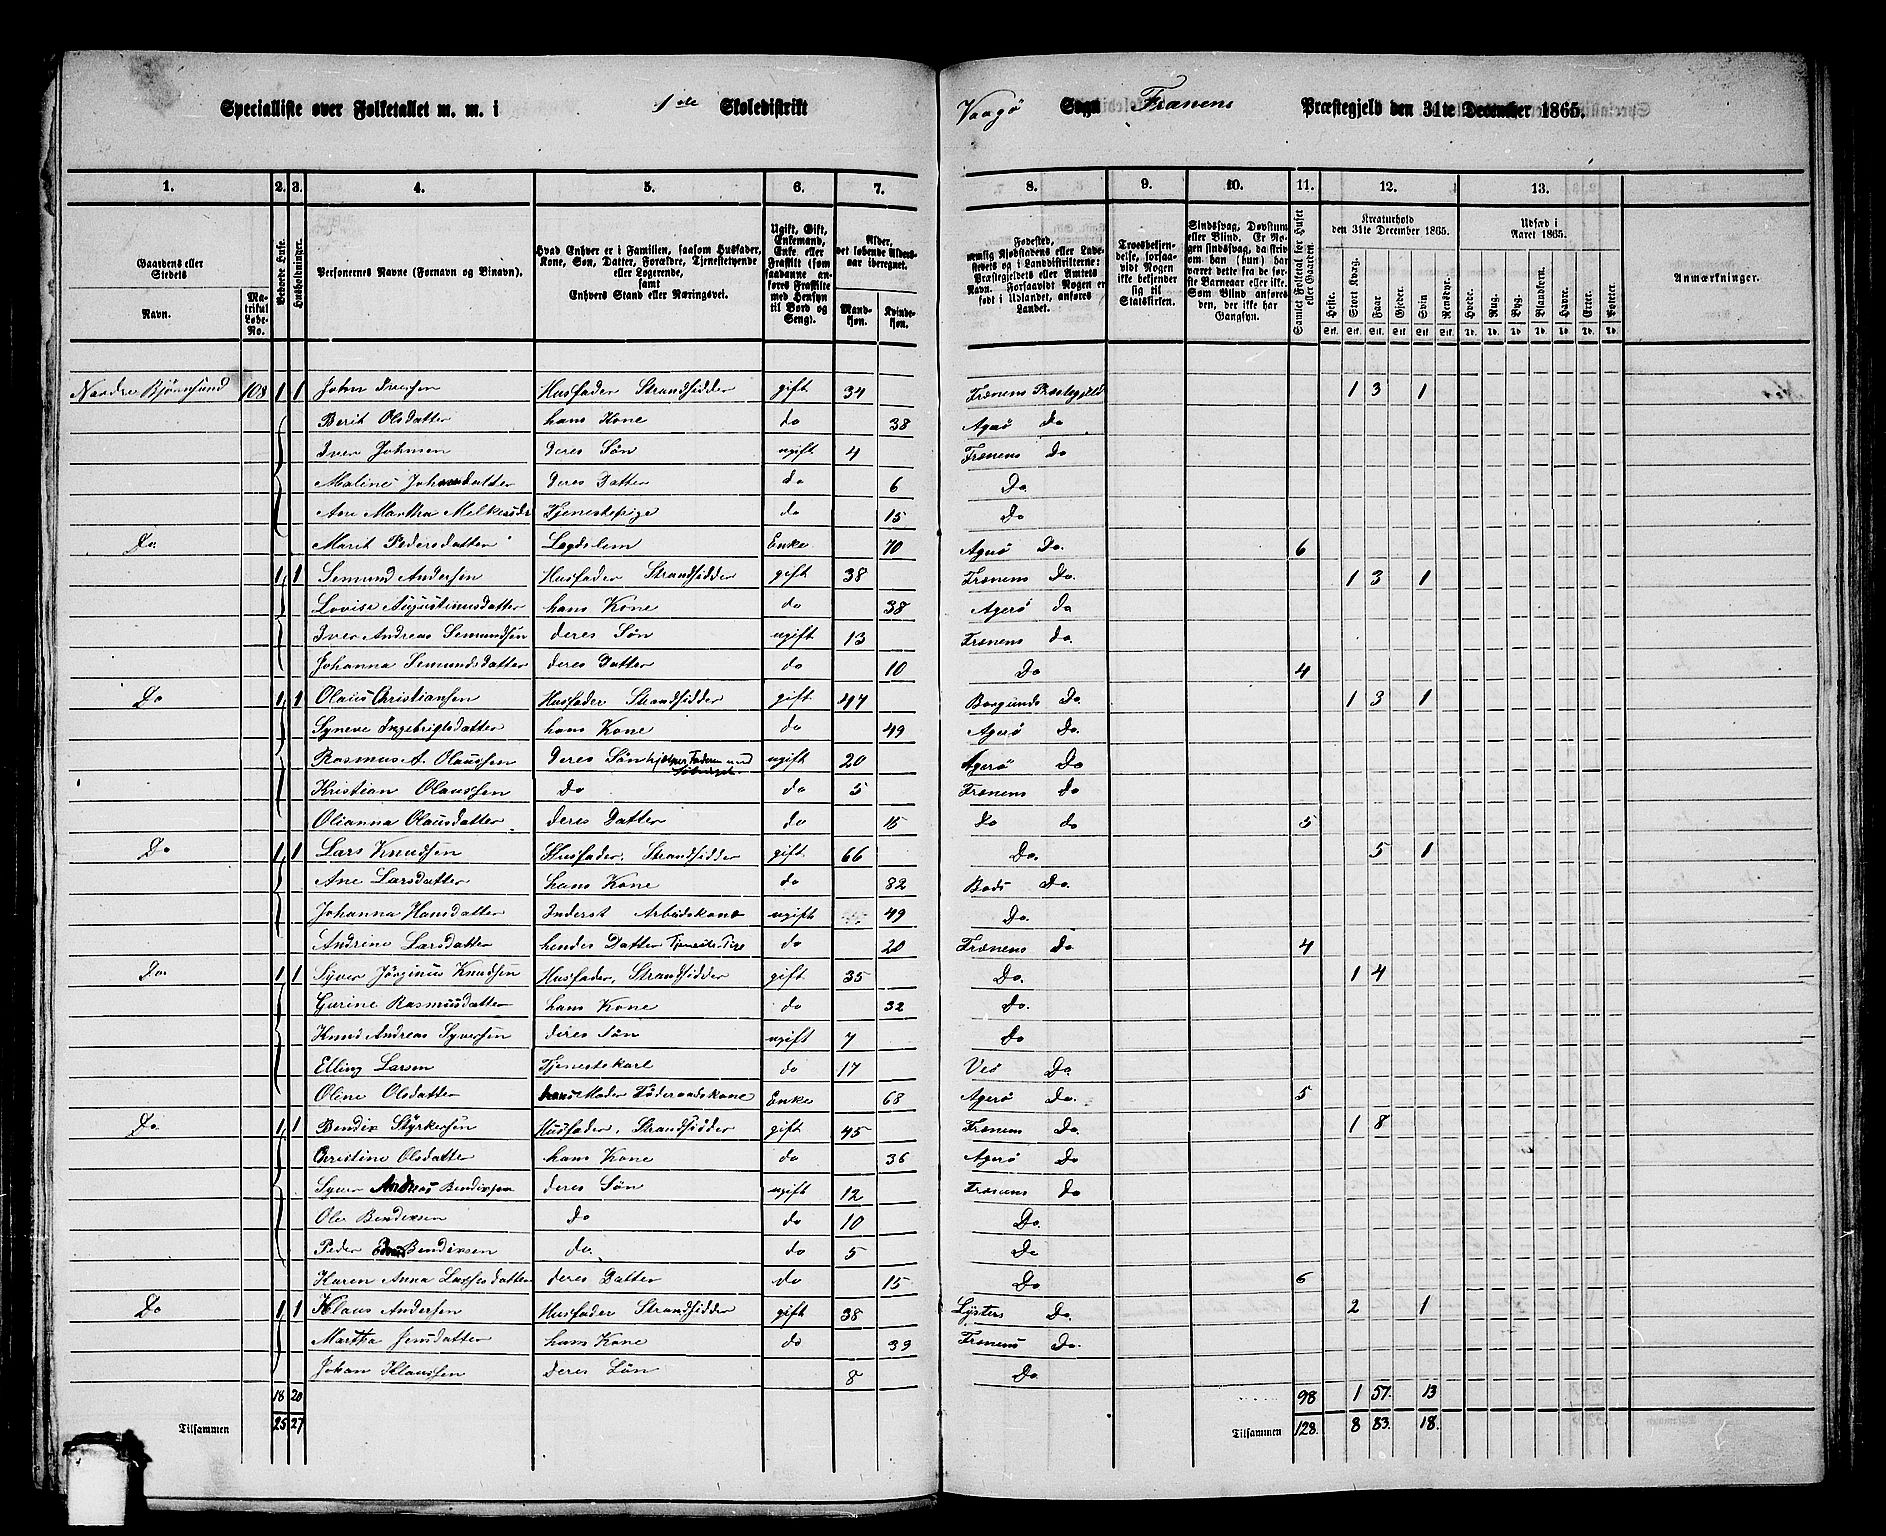 Specialliste over Folketallet m. m. i 1ste Skoledistrikt Vaagø Sogn Frænens Præstegjeld den 31te December 1865.
1. 2. 3. 4. 5. 6. 7. 8. 9. 10. 11. 12. 13.
Gaardens eller Stedets Navn. Matrikul Løbe-No.
Beboede Huse.
Husholdninger.
Personernes Navne (Fornavn og Binavn).
Hvad Enhver er i Familien, saasom Husfader, Kone, Søn, Datter, Forældre, Tjenestetyende eller Logerende, samt Enhvers Stand eller Næringsvei.
Ugift, Gift, Enkemand, Enke eller Fraskilt (som saadanne anføres Fraskilte med Hensyn til Bord og Seng).
Alder, det løbende Aldersaar iberegnet. Mandkjøn. Kvindekjøn.
Fødested, nemlig Kjøbstadens eller Ladestedets og i Landdistrikterne: Præstegjeldets eller Amtets Navn. Forsaavidt Nogen er født i Udlandet, anføres Landet.
Troesbekjendelse, forsaavidt Nogen ikke bekjender sig til Statskirken.
Sindssvag, Døvstum eller Blind. Er Nogen sindssvag, da skrives om han (hun) har været dette fra de første Barneaar eller ikke. Som Blind anføres den, der ikke har Gangsyn.
Samlet Folketal for Huset eller Gaarden.
Kreaturhold den 31te December 1865. Heste. Stort Kvæg. Faar. Gjeder. Svin. Rensdyr.
Udsæd i Aaret 1865. Hvede. Rug. Byg. Blandkorn. Havre. Erter. Poteter.
Anmærkninger.
Nordre Bjørnsund 108 1 1 John Iversen Husfader Strandsidder gift 34 Frænens Præstegjeld 1 3 1
Berit Olsdatter hans Kone do 38 Agerø Do
Iver Johnsen deres Søn ugift 4 Frænens Do
Maline Johnsdatter deres Datter do 6 Do
Ane Martha Melkersdr Tjenestepige do 15 Do
Do. Marit Pedersdatter Legdslem Enke 70 Agerø Do. 6
1 1 Semund Andersen Husfader Strandsidder gift 38 Frænens Do. 1 3 1
Lovise Augustinusdatter hans Kone do 38 Agerø Do
Iver Andreas Semundsen deres Søn ugift 13 Frænens Do.
Johanna Semundsdatter deres Datter do 10 Do 4
Do 1 1 Olaus Christiansen Husfader Strandsidder gift 47 Borgunds Do. 1 3 1
Syneve Ingebrigtsdatter hans Kone do 49 Agerø Do.
Rasmus A. Olaussen deres Søn hjelper Faderen med gift 20 Agerø Do
Kristian Olaussen Do do 5 Frænens Do
Olianna Olausdatter deres Datter do 15 Do do 5
Do 1 1 Lars Knudsen Husfader, Strandsidder gift 66 Do. 5 1
Ane Larsdatter hans Kone do 82 Bods Do.
Johanna Hansdatter Inderst Arbeidskone ugift 49 Do.
Andrine Larsdatter hendes Datter do 20 Frænens Do 4
Do. 1 1 Syver Jørginus Knudsen Husfader, Strandsidder gift 35 Do. 1 4
Gurine Rasmusdatter hans Kone do 32 do.
Knud Andreas Syversen deres Søn ugift 7 do
Elling Larsen Tjenestekarl do 17 Veø Do.
Oline Olsdatter hans Moder Føderaadskone Enke 68 Agerø Do. 5
Do. 1 1 Bendix Styrkersen Husfader, Strandsidder gift 45 Frænens Do. 1 8
Christine Olsdatter hans Kone do 36 Agerø Do
Syver Andreas Bendixsen deres Søn ugift 12 Frænens Do
Ole Bendixsen do do 10 Do.
Peder Bendixsen do. do 5 Do
Karen Anna deres Datter do 15 Do 6
Do 1 1 Klaus Andersen Husfader Strandsidder gift 38 Lysters Do. 2 1
Martha Jensdatter hans Kone do 39 Frænens Do.
Johan Klaussen deres Søn 8 Do.
18 20 98 1 57. 13
Tilsammen 25 27 Tilsammen 128. 8 83. 18.